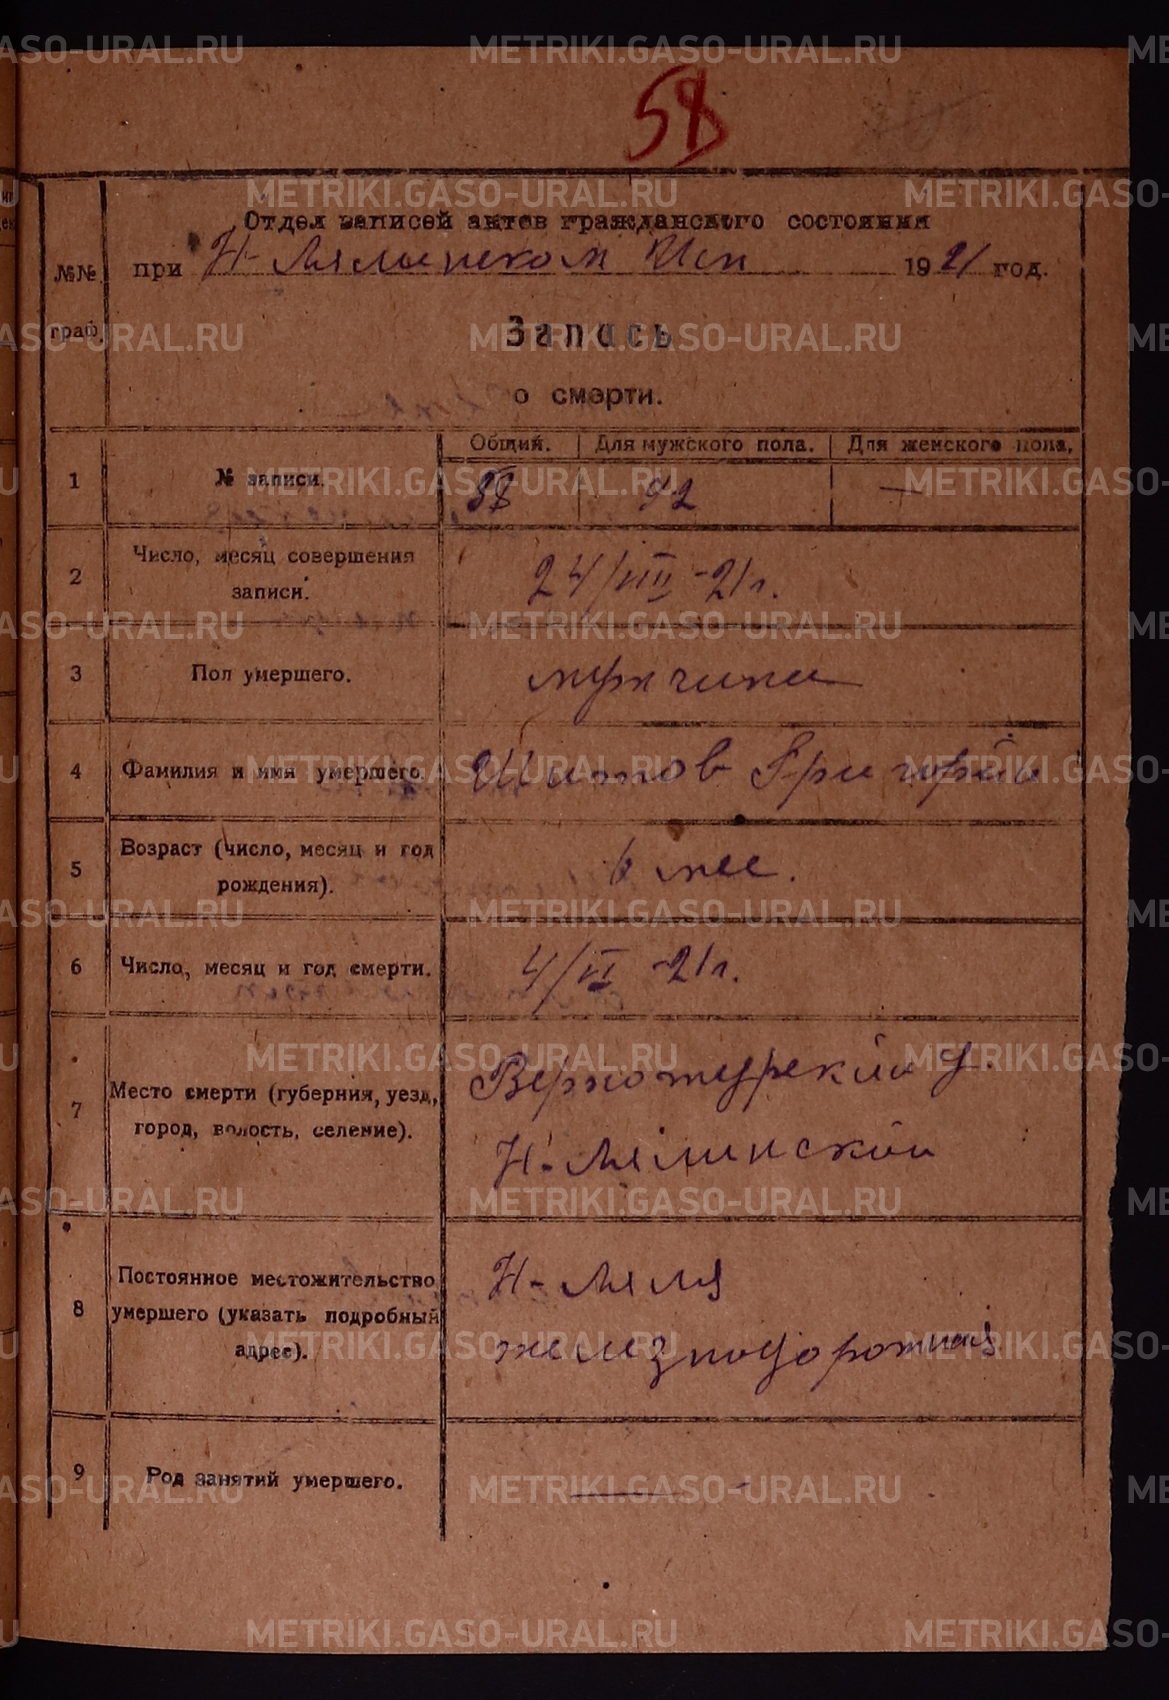 58
Отдел записей актов гражданского состояния
при Н-Лялинском Исп 1921 год.
№№ граф.
Запись
о смерти.
Общий. Для мужского пола. Для женского пола.
1 № записи. 58 42 —
2 Число, месяц совершения
записи. 24/VIII-21г.
3 Пол умершего. мужчина
4 Фамилия и имя умершего. Шитов Григорий
5 Возраст (число, месяц и год
рождения). 6 мес.
6 Число, месяц и год смерти. 4/VI-21г.
7 Место смерти (губерния, уезд,
город, волость, селение).
Верхотурский у.
Н-Лялинской
8 Постоянное местожительство
умершего (указать подробный
адрес).
Н-Ляля
железнодорожная
9 Род занятий умершего. —
METRIKI.GASO-URAL.RU